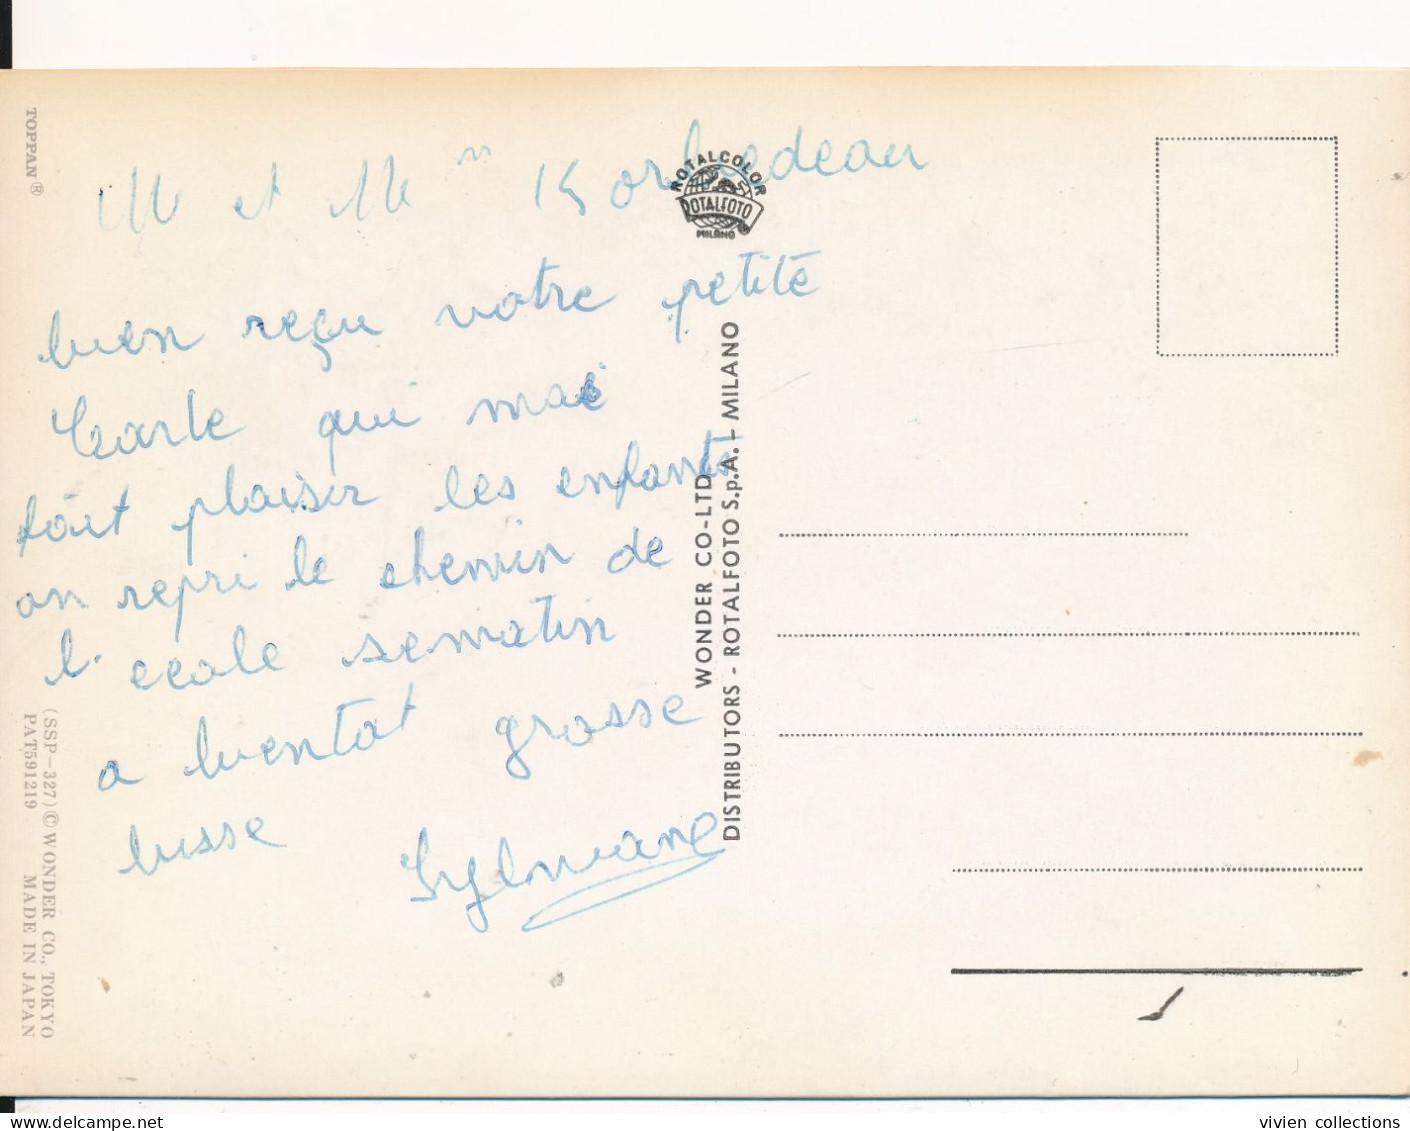 M et Mm
bien reçu votre petite
Carte qui mai
fait plaisir les enfants
on repri le chemin de
l'ecole sematin
a bientot grosse
bisse Sylviane
TOPPAN ®
(SSP-327) © WONDER CO., TOKYO
PAT591219 MADE IN JAPAN
ROTALCOLOR
ROTALFOTO
MILANO
WONDER CO-LTD
DISTRIBUTORS - ROTALFOTO S.p.A. - MILANO
vivien collections